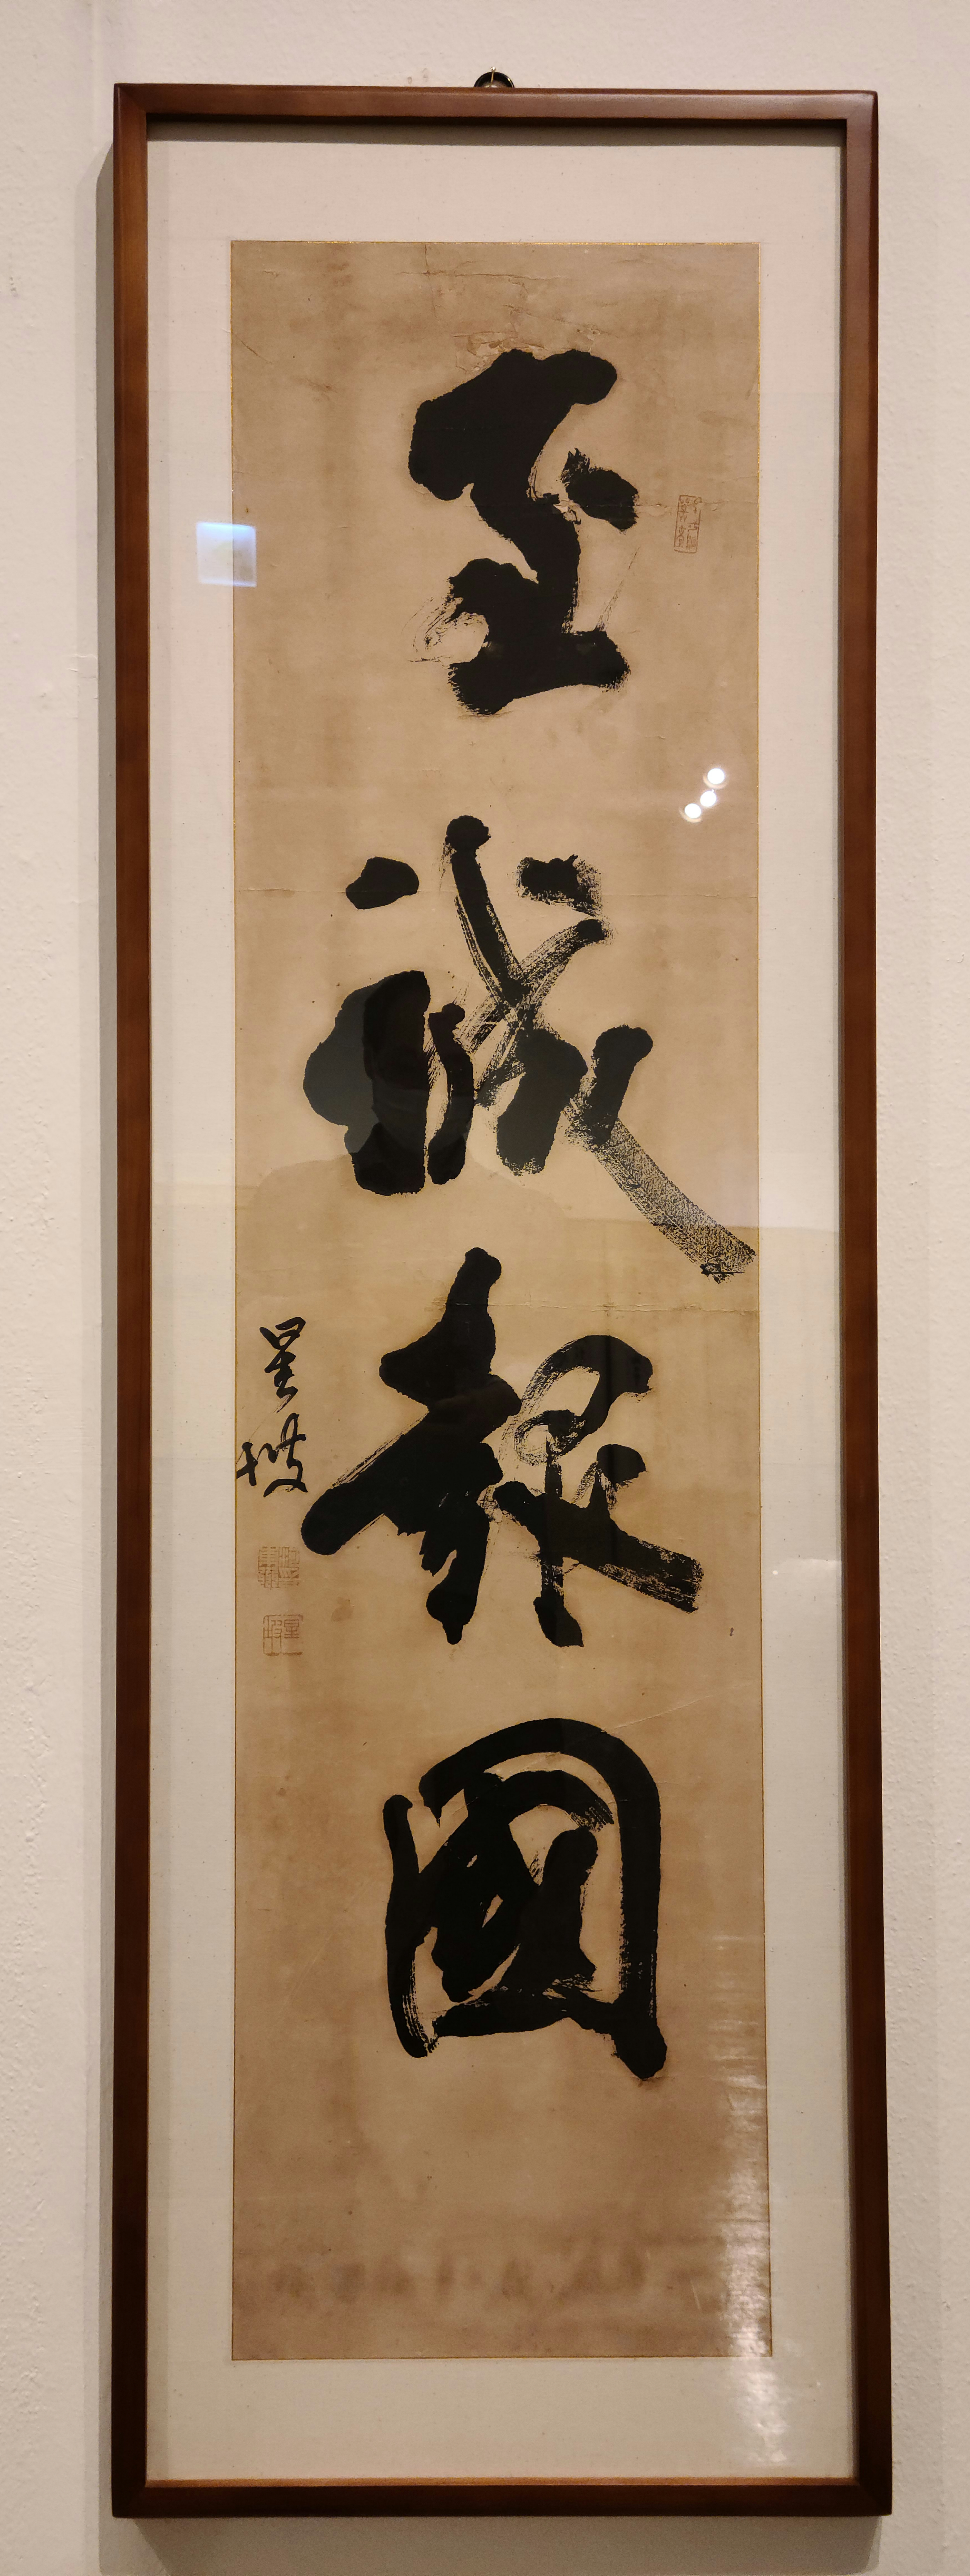 至誠報國
星坡